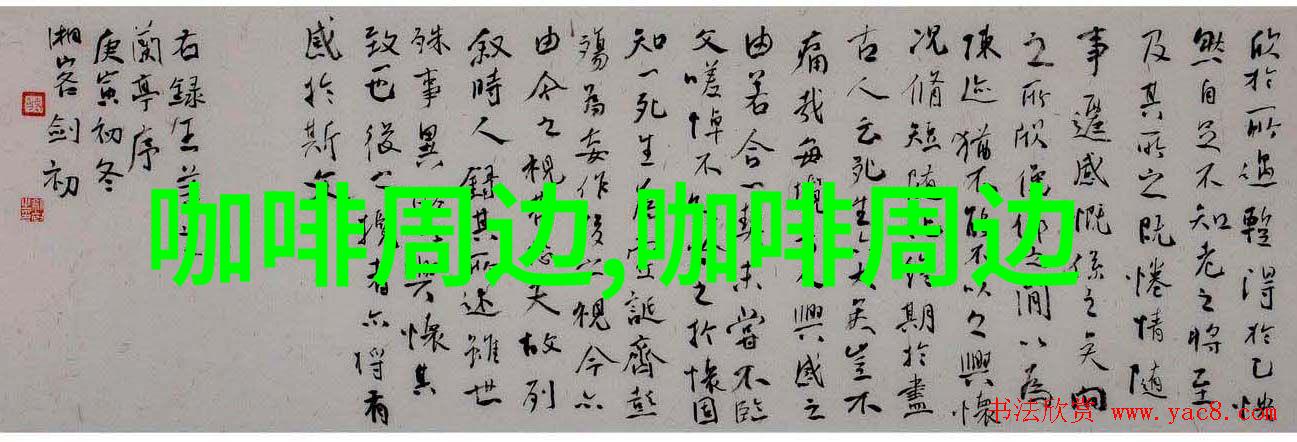 欣於所遇暫得於己快
然自足不知老之將至
及其所之既惓情隨
事遷感慨係之矣向
之所欣俛仰之間以為
陳迹猶不能不以之興懷
況脩短隨化終期於盡
古人云死生亦大矣豈不
痛哉每攬昔人興感之
由若合一契未嘗不臨
文嗟悼不能喻之於懷固
知一死生為虛誕齊彭
殤為妄作後之視今亦
由今之視昔悲夫故列
敘時人錄其所述雖世
殊事異所以興懷其
致一也後之攬者亦將有
感於斯文
右錄王羲之
蘭亭序
庚寅初冬
湘客劍初
咖啡周边,咖啡周边
书法欣赏 www.yac8.com